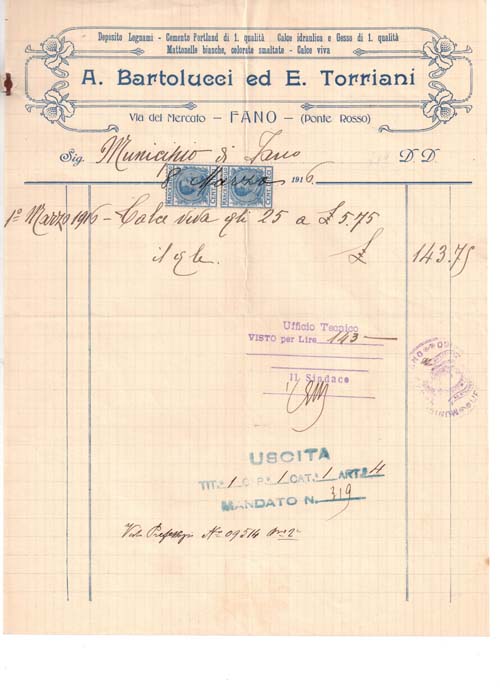 Deposito Legnami - Cemento Portland di 1. qualità Calce idraulica e Gesso di 1. qualità
Mattonelle bianche, colorate smaltate - Calce viva
A. Bartolucci ed E. Torriani
Via del Mercato - FANO - (Ponte Rosso)
Sig. Municipio di Fano D. D.
8 Marzo 1916
1° Marzo 1916 - Calce viva qli 25 a £ 5.75
il qle. £ 143.75
Ufficio Tecnico
VISTO per Lire 143
Il Sindaco
USCITA
TIT.° 1 CAP.° 1 CAT.ª 1 ART.° 4
MANDATO N. 319
N° 09514